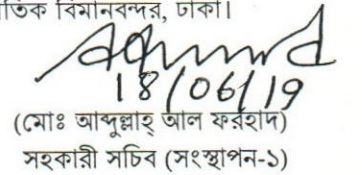 তিক বিমানবন্দর, ঢাকা।
18/06/19
(মোঃ আব্দুল্লাহ্ আল ফরহাদ)
সহকারী সচিব (সংস্থাপন-১)